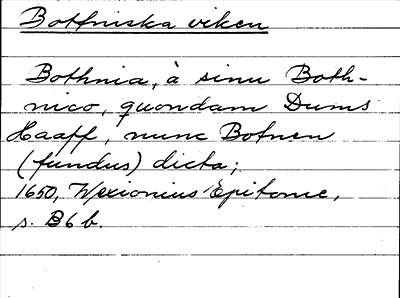 Bottniska viken
Bothnia, à sinu Both-
nico, quondam Dums
Haaff, nunc Botnen
(fundus) dicta;
1650, Wexionius Epitome,
s. B6b.